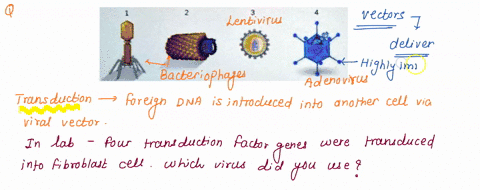 Q
1 2 3 4
Lentivirus
vectors
deliver
Highly imm
Bacteriophages
Adenovirus
Transduction → foreign DNA is introduced into another cell via
viral vector.
In lab - four transduction factor genes were transduced
into fibroblast cell. which virus did you use?